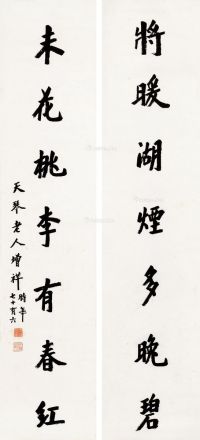 將暖湖煙多晚碧
未花桃李有春紅
天琴老人增祥
時年
七十有六